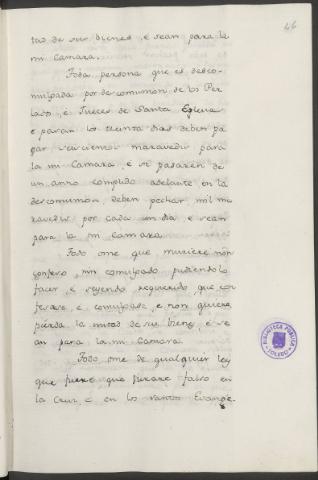 46
tad de sus bienes, e sean para la
mi Camara.
Toda persona que es desco-
mulgada por descomunion de los Per
lados, e Jueces de Santa Eglesia
e pasan los treinta dias deben pa
gar seiscientos maravedis para
la mi Camara, e si pasaren de
un anno complido adelante en la
descomunion, deben pechar mil ma
ravedis por cada un dia, e sean
para la mi Camara
Todo ome que muriere non
confeso, nin comulgado pudiendolo
facer, e seyendo requerido que con
fesase, e comulgase, e non quiere,
pierda la mitad de sus bienes, e se
an para la mi Camara.
Todo ome de qualquier ley
que fuere, que jurare falso en
la Cruz, e en los santos Evange-
BIBLIOTECA PUBLICA
TOLEDO